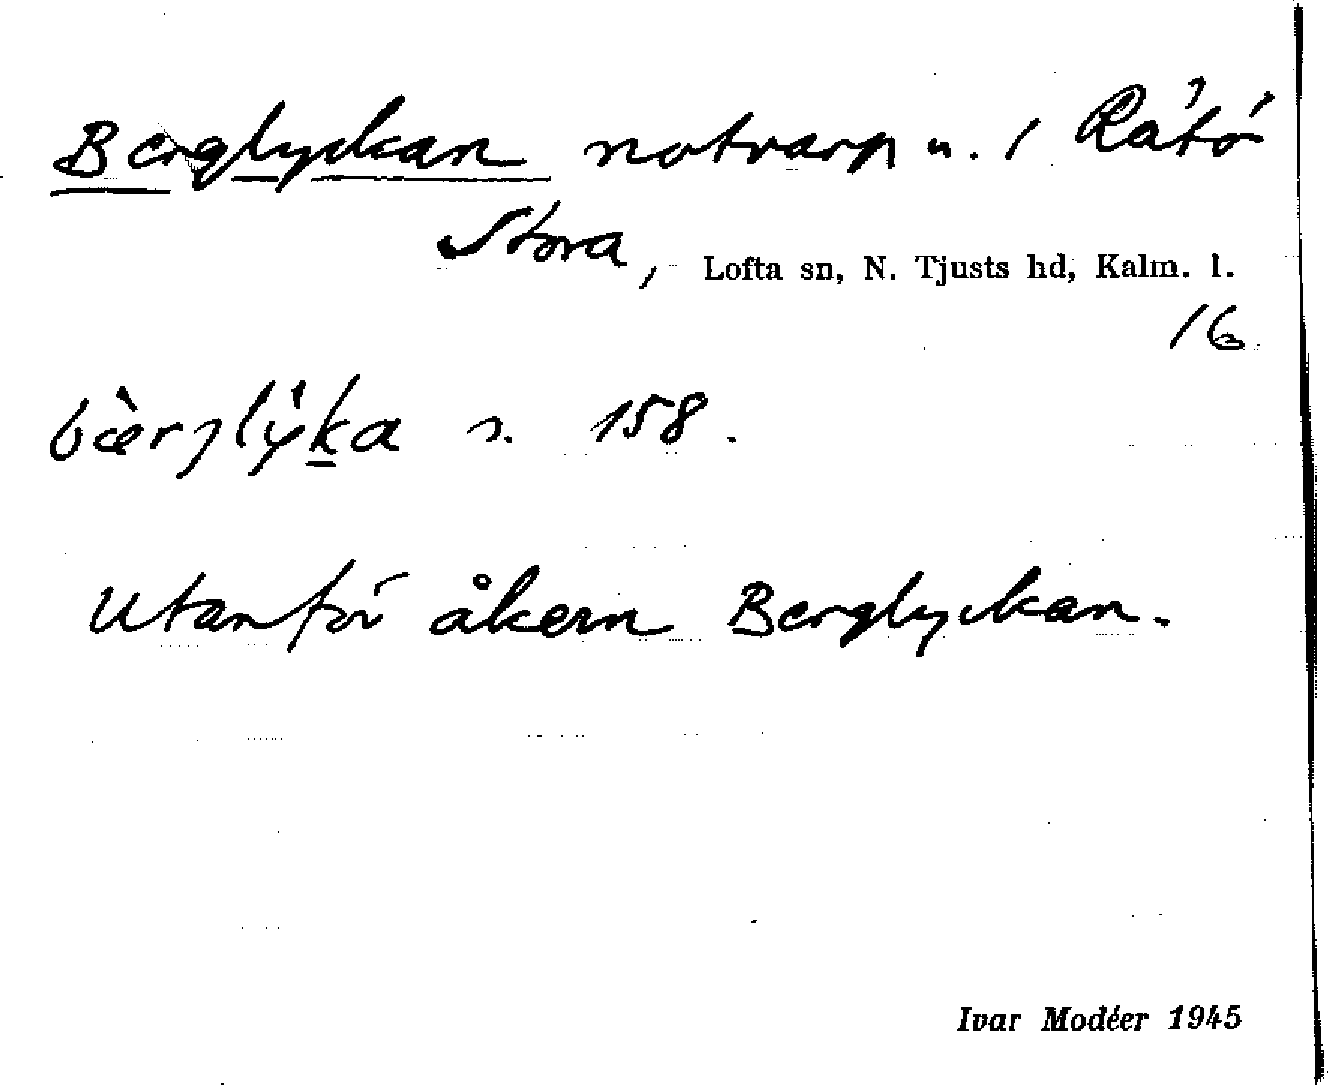 Berglyckan notvarp u. / Råtö
Stora, Lofta sn, N. Tjusts hd, Kalm. l.
16
s. 158.
Utanför åkern Berglyckan.
Ivar Modéer 1945